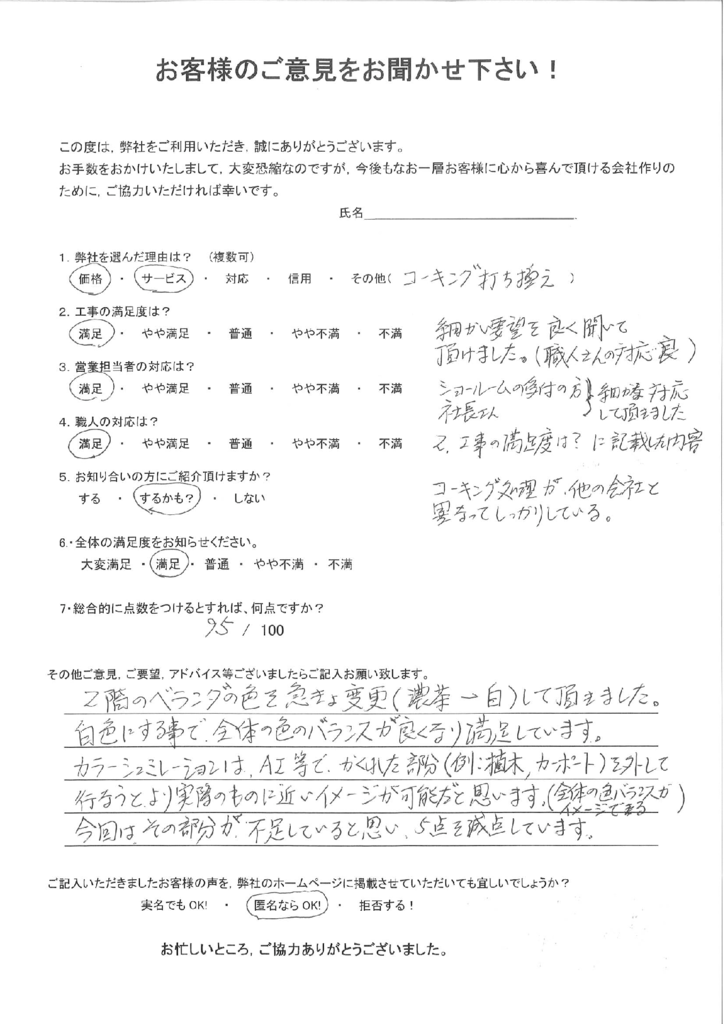 お客様のご意見をお聞かせ下さい！
この度は，弊社をご利用いただき，誠にありがとうございます。
お手数をおかけいたしまして，大変恐縮なのですが，今後もなお一層お客様に心から喜んで頂ける会社作りの
ために，ご協力いただければ幸いです。
氏名
1．弊社を選んだ理由は？　（複数可）
価格　・　サービス　・　対応　・　信用　・　その他（　コーキング打ち換え　）
2．工事の満足度は？
満足　・　やや満足　・　普通　・　やや不満　・　不満
細かい要望を良く聞いて
頂けました。（職人さんの対応良）
3．営業担当者の対応は？
満足　・　やや満足　・　普通　・　やや不満　・　不満
ショールームの受付の方
社長さん
細かな対応
して頂きました
4．職人の対応は？
満足　・　やや満足　・　普通　・　やや不満　・　不満
2．工事の満足度は？に記載した内容
5．お知り合いの方にご紹介頂けますか？
する　・　するかも？　・　しない
コーキング処理が、他の会社と
異なってしっかりしている。
6．・全体の満足度をお知らせください。
大変満足　・　満足　・　普通　・　やや不満　・　不満
7・総合的に点数をつけるとすれば、何点ですか？
95 / 100
その他ご意見，ご要望，アドバイス等ございましたらご記入お願い致します。
2階のベランダの色を急きょ変更（濃茶→白）して頂きました。
白色にする事で、全体の色のバランスが良くなり満足しています。
カラーシュミレーションは、AI等で、かくれた部分（例：植木，カーポート）を外して
行なうと、より実際のものに近いイメージが可能だと思います。（全体の色バランスがイメージできる）
今回は、その部分が、不足していると思い、5点を減点しています。
ご記入いただきましたお客様の声を，弊社のホームページに掲載させていただいても宜しいでしょうか？
実名でもOK!　・　匿名ならOK!　・　拒否する！
お忙しいところ，ご協力ありがとうございました。